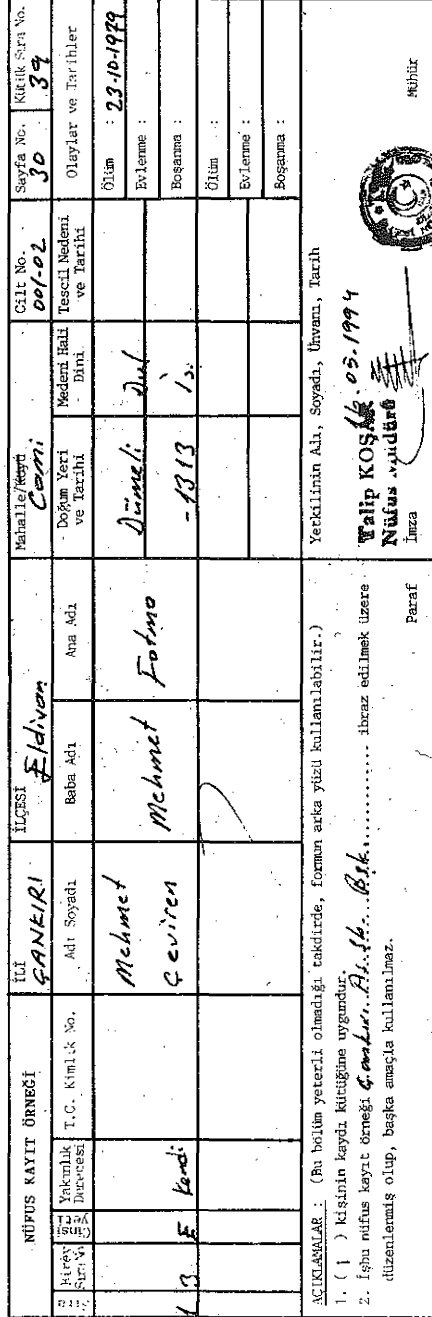 NÜFUS KAYIT ÖRNEĞİ
İLİ
ÇANKIRI
İLÇESİ
Eldivan
Mahalle/Köyü
Cami
Cilt No.
001-02
Sayfa No.
30
Kütük Sıra No.
39
Birey Sıra No
Cinsiyeti
Yakınlık Derecesi
T.C. Kimlik No.
Adı Soyadı
Baba Adı
Ana Adı
Doğum Yeri ve Tarihi
Medeni Hali Dini
Tescil Nedeni ve Tarihi
Olaylar ve Tarihler
1 3 E Kendi
Mehmet
Çeviren
Mehmet
Fatma
Dümeli
-1313
Dul
İs.
Ölüm : 23-10-1979
Evlenme :
Boşanma :
Ölüm :
Evlenme :
Boşanma :
AÇIKLAMALAR : (Bu bölüm yeterli olmadığı takdirde, formun arka yüzü kullanılabilir.)
1. ( 1 ) kişinin kaydı kütüğüne uygundur.
2. İşbu nüfus kayıt örneği Çankırı As. Şb. Bşk. ibraz edilmek üzere
düzenlenmiş olup, başka amaçla kullanılmaz.
Paraf
Yetkilinin Adı, Soyadı, Ünvanı, Tarih
Talip KOŞAR 16.05.1994
Nüfus Müdürü
İmza
Mühür